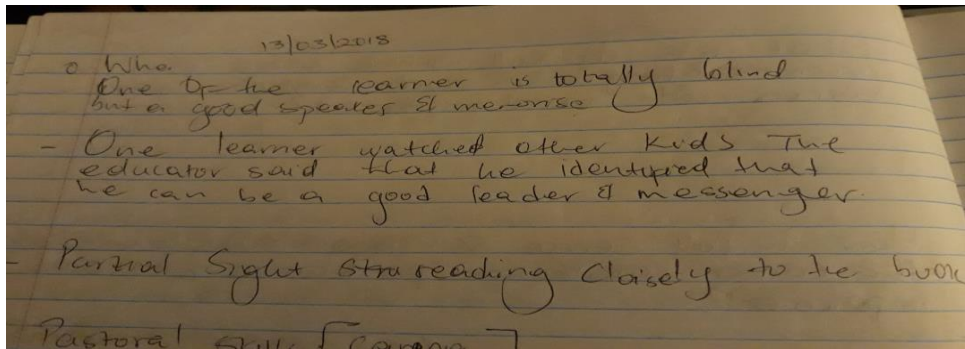 13/03/2018
o Who.
One of the learner is totally blind
but a good speaker & memorise
- One learner watched other kids The
educator said that he identified that
he can be a good leader & messenger.
- Partial Sight reading Cloisely to the book
Pastoral